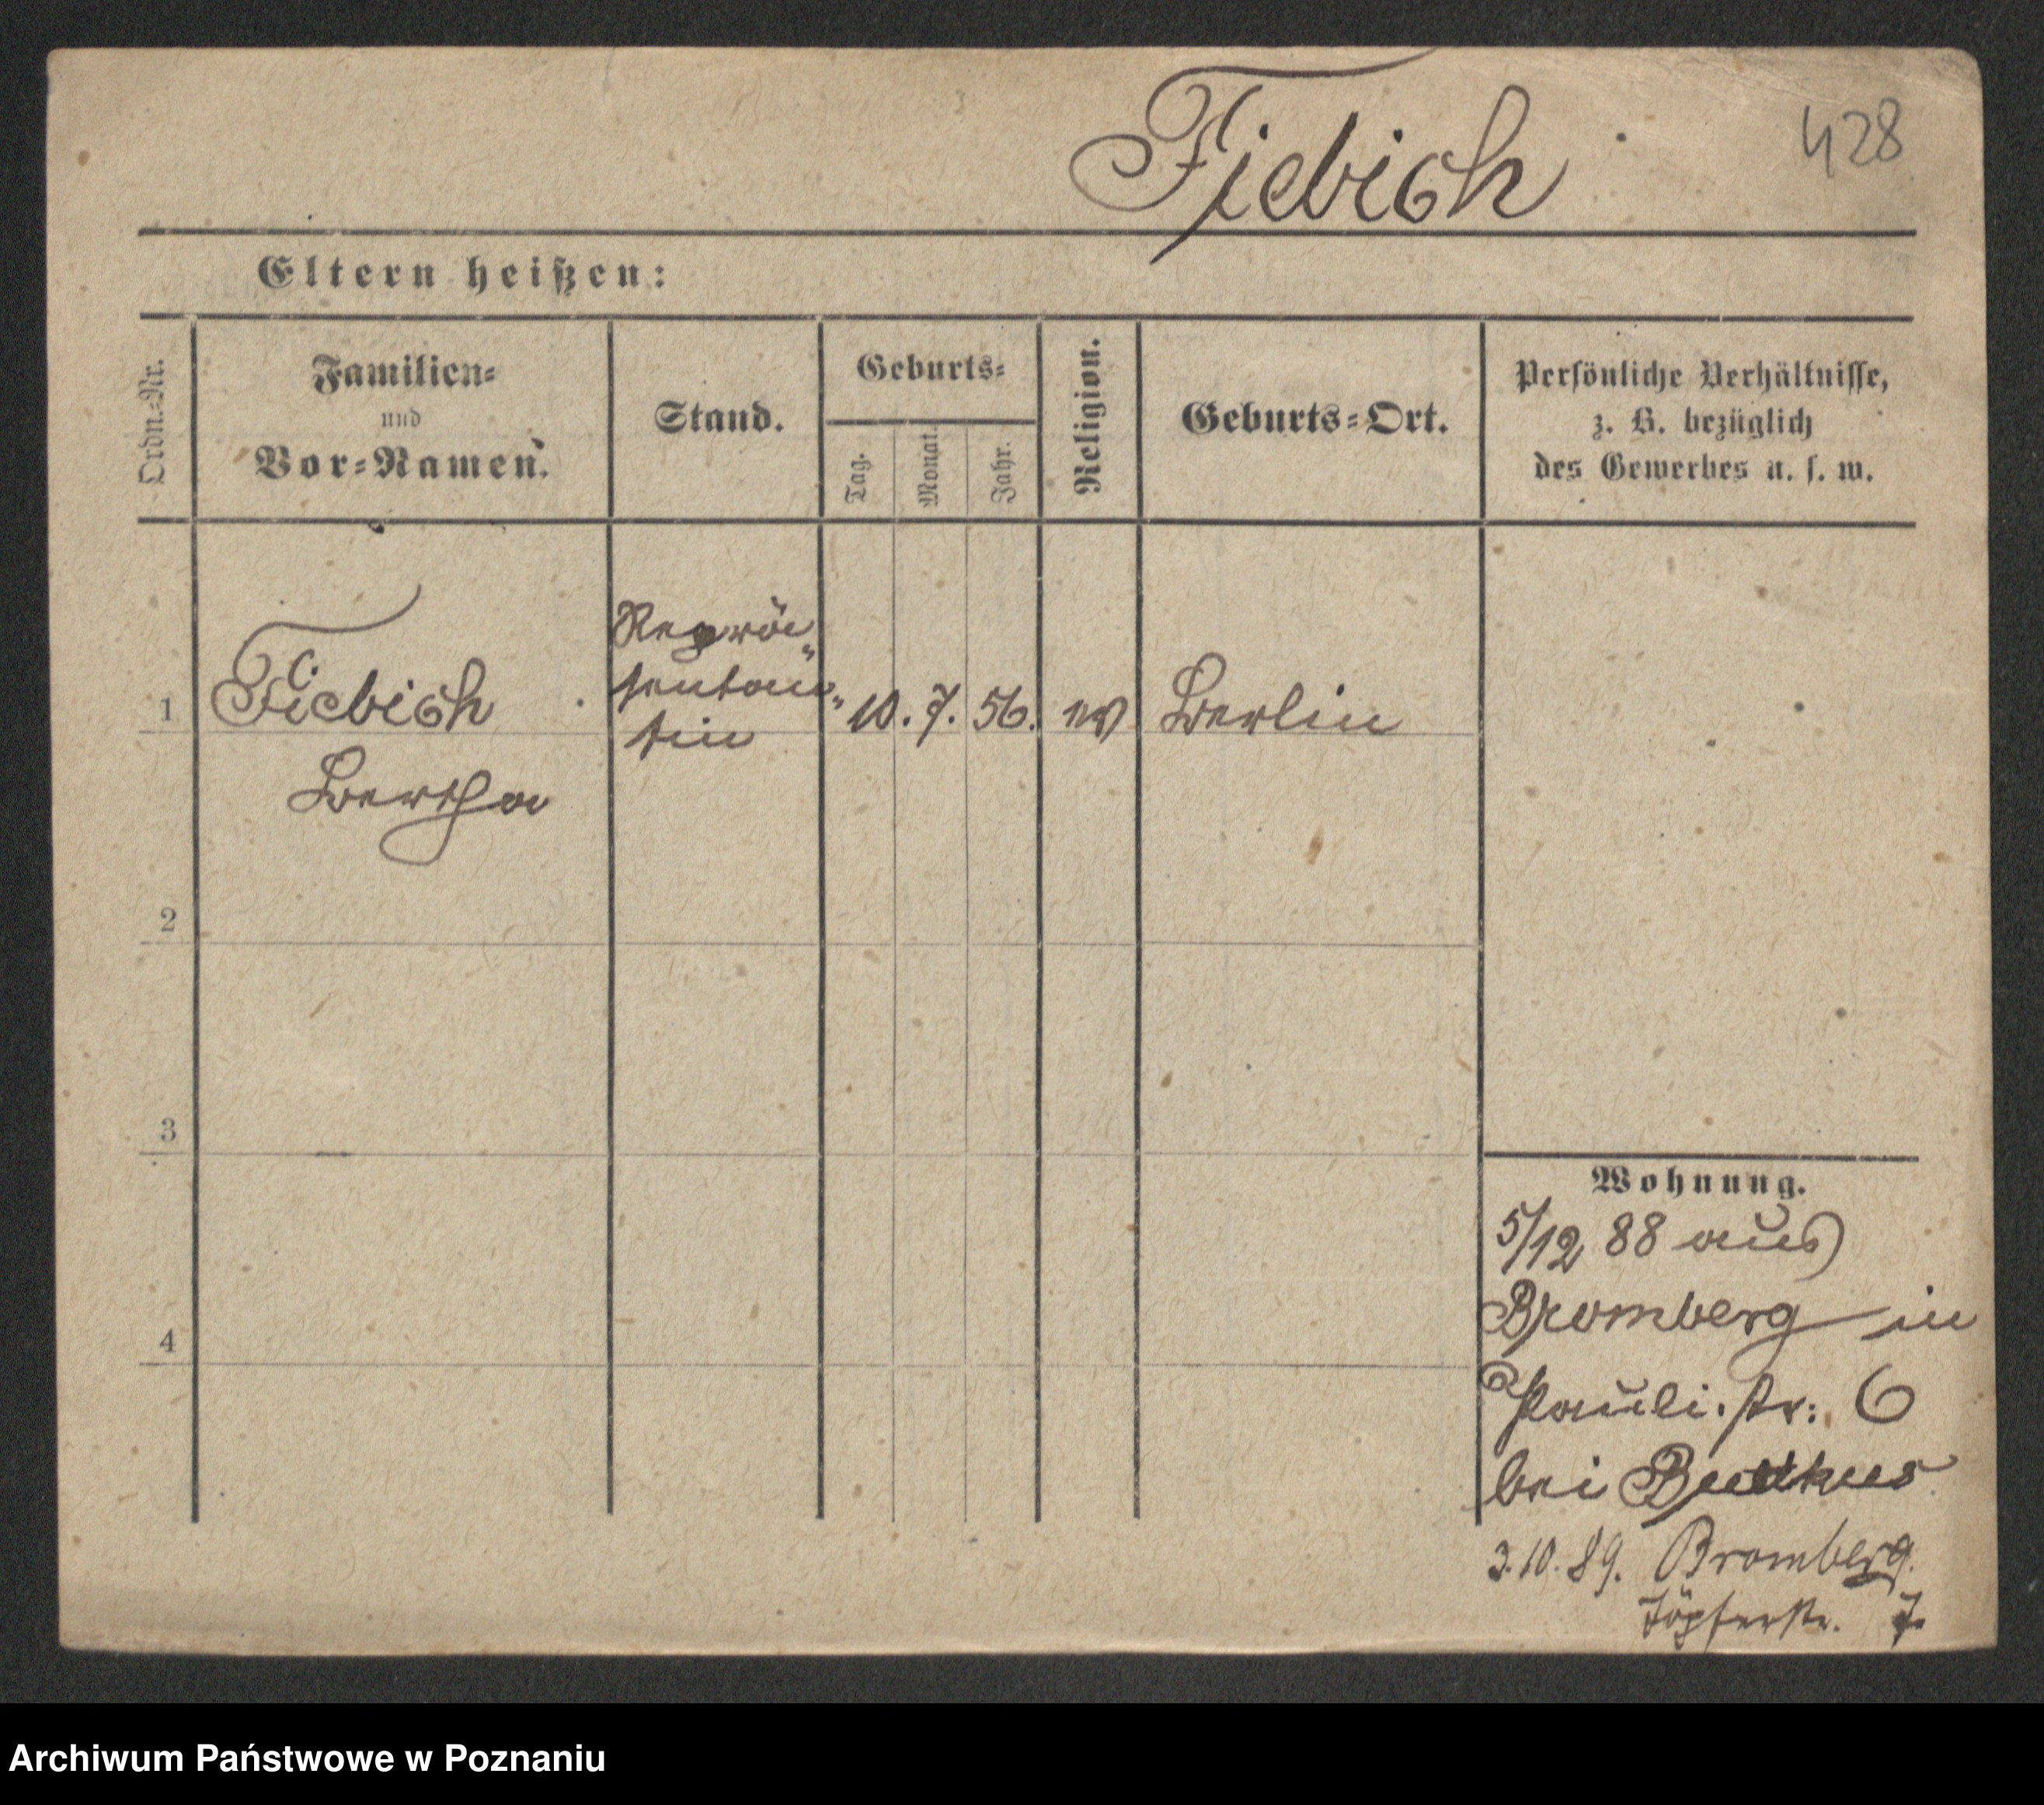 428
Fiebich
Eltern heißen:
Ordn.-Nr.
Familien-
und
Vor-Namen.
Stand.
Geburts-
Tag.
Monat.
Jahr.
Religion.
Geburts-Ort.
Persönliche Verhältnisse,
z. B. bezüglich
des Gewerbes u. s. w.
1
Fiebich
Bertha
Reprä-
sentan-
tin
10. 7. 56.
ev
Berlin
2
3
4
Wohnung.
5/12 88 aus
Bromberg in
Pauli. str: 6
bei Budkus
3.10.89. Bromberg.
Töpferstr. 7.
Archiwum Państwowe w Poznaniu